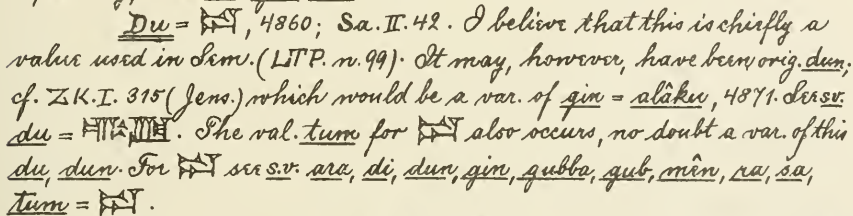 Du = 𒁺, 4860; Sa. II. 42. I believe that this is chiefly a
value used in Sem. (LTP. n. 99). It may, however, have been orig. dun;
cf. ZK. I. 315 (Jens.) which would be a var. of gin = alâku, 4871. See s.v.
du = . The val. tum for 𒁺 also occurs, no doubt a var. of this
du, dun. For 𒁺 see s.v. ara, di, dun, gin, gubba, gub, mên, ra, ša,
tum = 𒁺.